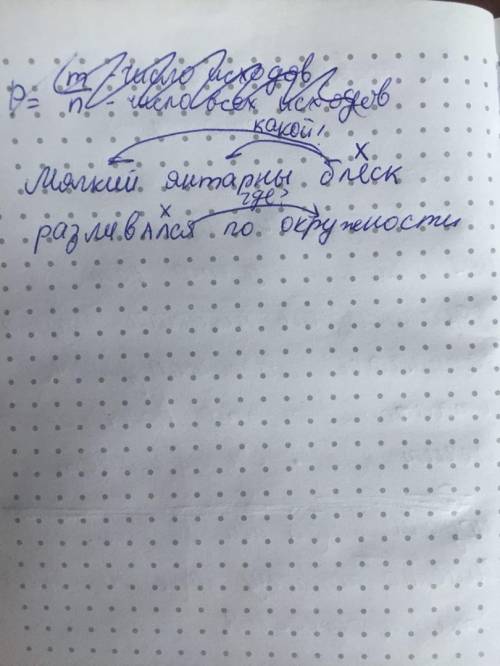 P = m - число исходов
n - число всех исходов
какой?
х
Мягкий янтарны блеск
где?
х
разливался по окружности